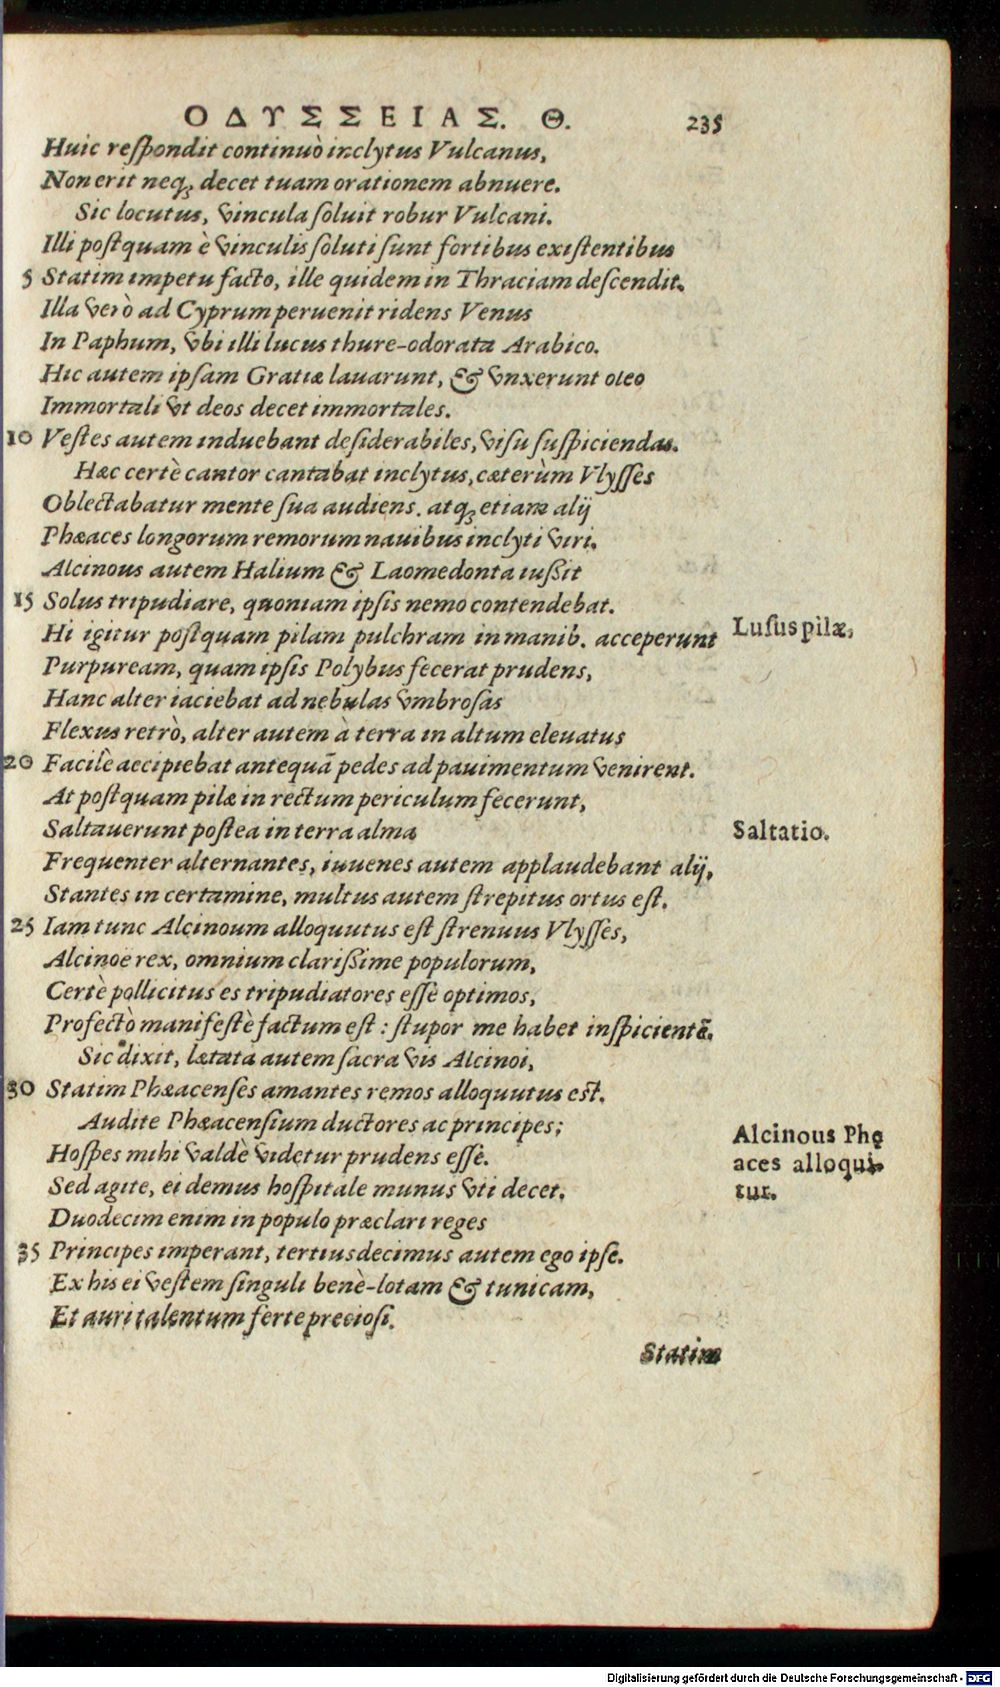 ΟΔΥΣΣΕΙΑΣ. Θ. 235
Huic reſpondit continuò inclytus Vulcanus,
Non erit neq; decet tuam orationem abnuere.
Sic locutus, vincula ſoluit robur Vulcani.
Illi poſtquam è vinculis ſoluti ſunt fortibus exiſtentibus
5 Statim impetu facto, ille quidem in Thraciam deſcendit.
Illa verò ad Cyprum peruenit ridens Venus
In Paphum, vbi illi lucus thure-odorata Arabico.
Hic autem ipſam Gratiæ lauarunt, & vnxerunt oleo
Immortali vt deos decet immortales.
10 Veſtes autem induebant deſiderabiles, viſu ſuſpiciendas.
Hæc certè cantor cantabat inclytus, cæterùm Vlyſſes
Oblectabatur mente ſua audiens. atq; etiam alij
Phæaces longorum remorum nauibus inclyti viri.
Alcinous autem Halium & Laomedonta iußit
15 Solus tripudiare, quoniam ipſis nemo contendebat.
Hi igitur poſtquam pilam pulchram in manib. acceperunt
Luſus pilæ,
Purpuream, quam ipſis Polybus fecerat prudens,
Hanc alter iaciebat ad nebulas vmbroſas
Flexus retrò, alter autem à terra in altum eleuatus
20 Facilè accipiebat antequã pedes ad pauimentum venirent.
At poſtquam pilæ in rectum periculum fecerunt,
Saltauerunt poſtea in terra alma
Saltatio.
Frequenter alternantes, iuuenes autem applaudebant alij,
Stantes in certamine, multus autem ſtrepitus ortus eſt.
25 Iam tunc Alcinoum alloquutus eſt ſtrenuus Vlyſſes,
Alcinoe rex, omnium clarißime populorum,
Certè pollicitus es tripudiatores eſſe optimos,
Profectò manifeſtè factum eſt : ſtupor me habet inſpicientẽ.
Sic dixit, lætata autem ſacra vis Alcinoi,
30 Statim Phæacenſes amantes remos alloquutus eſt.
Audite Phæacenſium ductores ac principes;
Alcinous Phę
Hoſpes mihi valdè videtur prudens eſſe.
aces alloqui-
Sed agite, ei demus hoſpitale munus vti decet.
tur.
Duodecim enim in populo præclari reges
35 Principes imperant, tertiusdecimus autem ego ipſe.
Ex his ei veſtem ſinguli benè-lotam & tunicam,
Et auri talentum ferte precioſi.
Statim
Digitalisierung gefördert durch die Deutsche Forschungsgemeinschaft - DFG